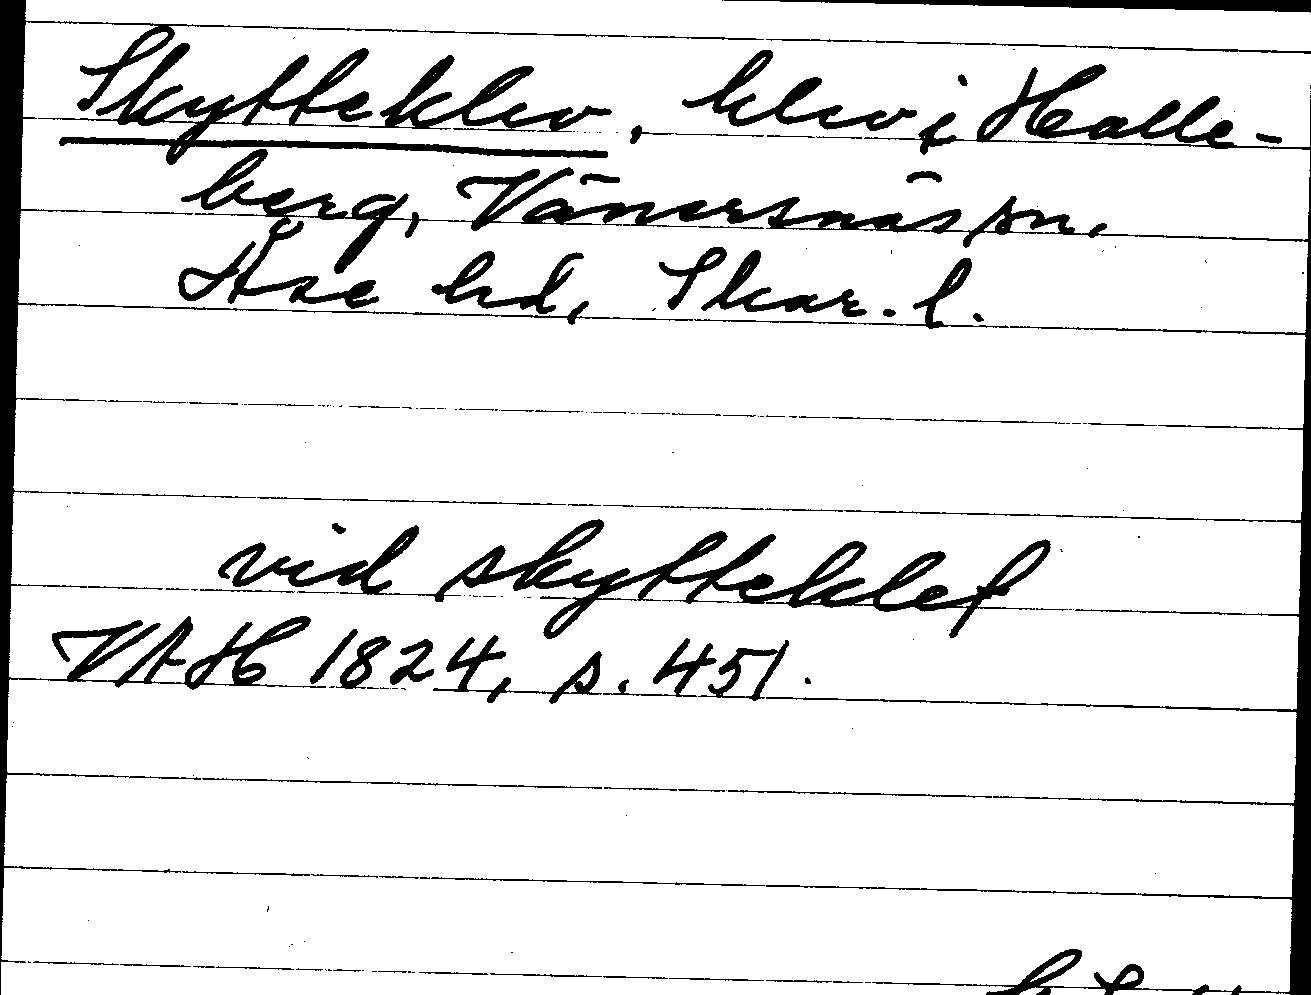 Skytteklev, klev i Halle-
berg, Vänersnäs sn.
Åse hd, Skar. l.
vid skytteklef
VAH 1824, s. 451.